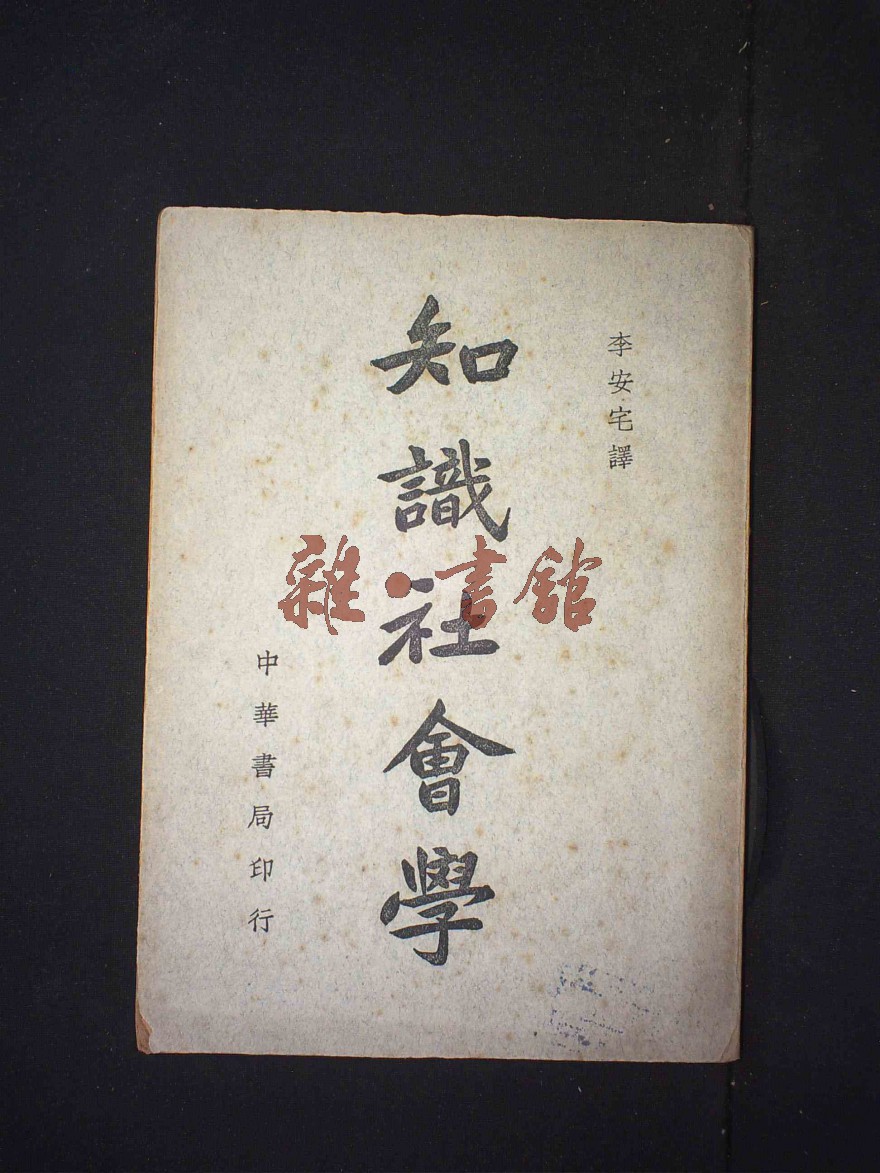 李安宅譯
知識社會學
中華書局印行
雜·書館